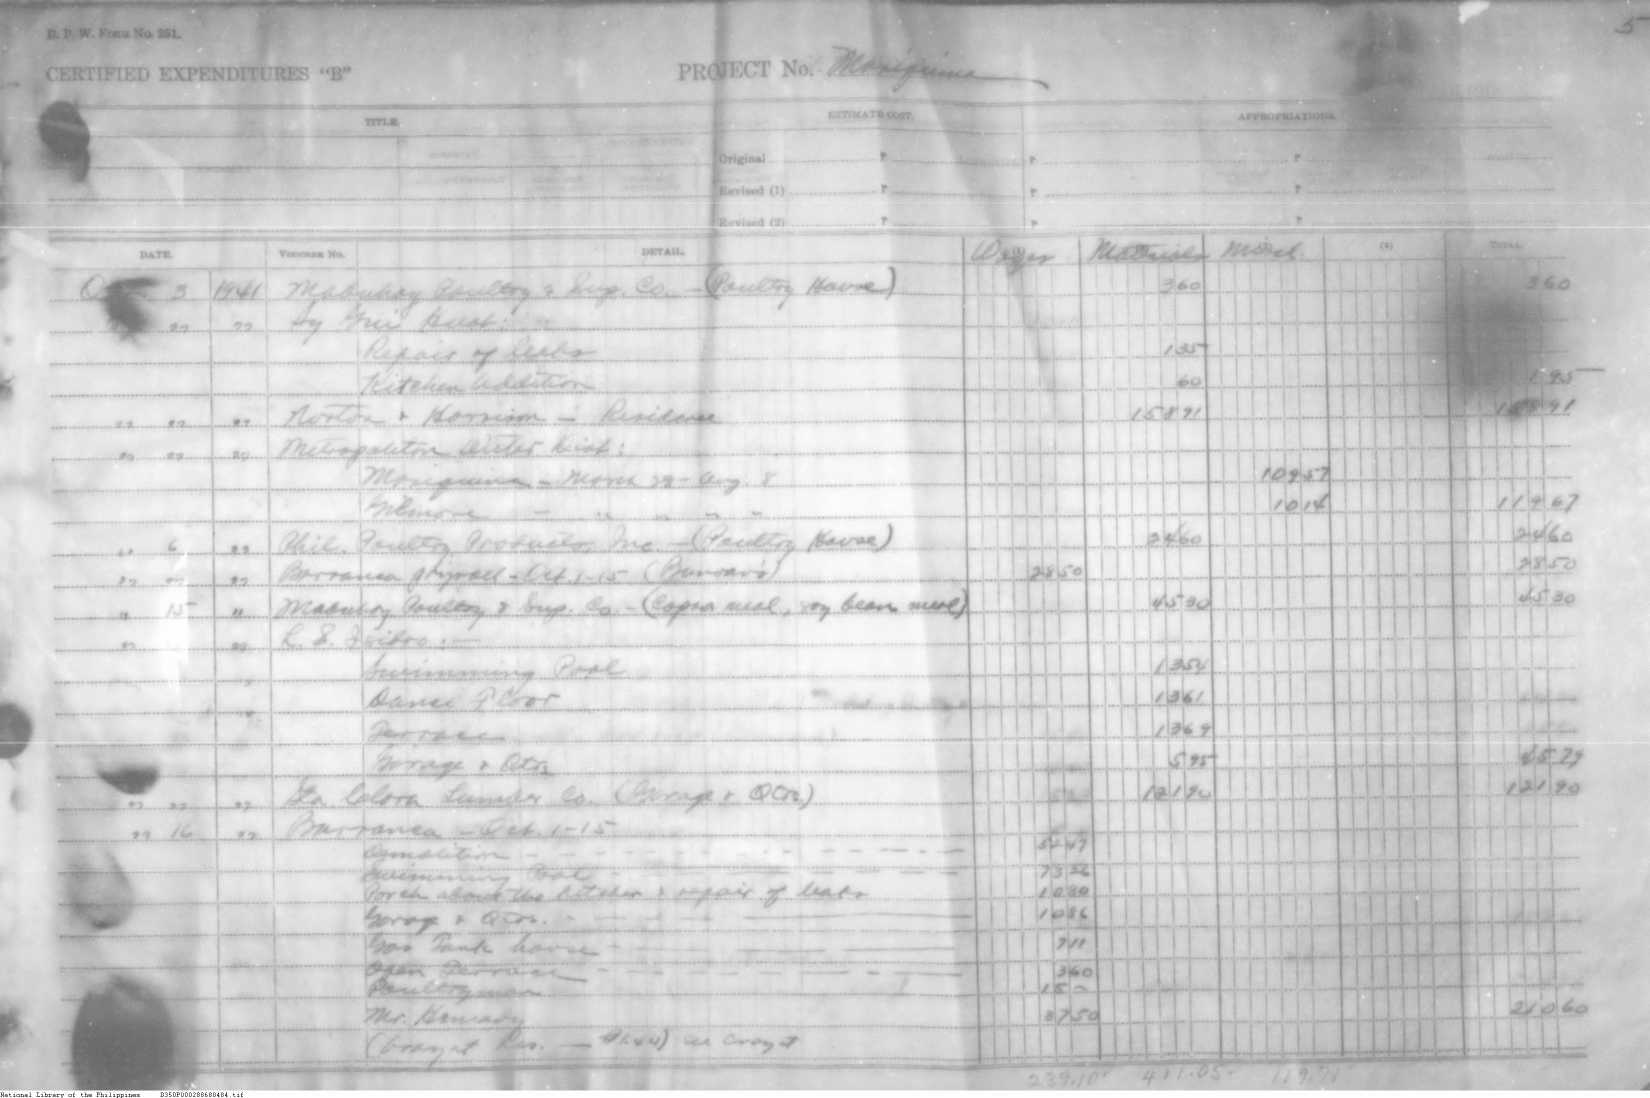 B. P. W. Form No. 251.
5
CERTIFIED EXPENDITURES "B"
PROJECT No. Mariquina
TITLE.
ESTIMATE COST.
APPROPRIATIONS.
Original P P P
Revised (1) P P P
Revised (2) P P P
DATE. VOUCHER No. DETAIL. Wages Materials Misch. (4) TOTAL.
3 1941 Mabuhay Poultry & Sup. Co. - (Poultry House) 360 360
" "
Repair of leaks 135
Kitchen Addition 60 195
" " " Norton & Harrison - Residence 15891 15891
" " " Metropolitan Water Dist:
Mariquina - March 29 - Aug. 8 10957
Gilmore - " " " " 1014 11967
" 6 " Phil. Poultry Products, Inc. - (Poultry House) 2460 2460
" " " Barranca payroll - Oct. 1-15 2850 2850
" 15 " Mabuhay Poultry & Sup. Co. - (Copra meal, soy bean meal) 4530 4530
" "
Swimming Pool 1354
Dance Floor 1361
Terrace 1369
Garage & Qtrs 595 4529
" " " Lumber Co. (Garage & Qtrs.) 12190 12190
" 16 " Barranca - Oct. 1-15
Demolition 5247
Swimming Pool 7356
Porch above the kitchen & repair of leaks 1080
Garage & Qtrs. 1086
Gas Tank house 711
Open Terrace 360
Poultryman 15 -
Mr. 3750 21060
239.10 411.05 119.71
National Library of the Philippines D350P000288680404.tif